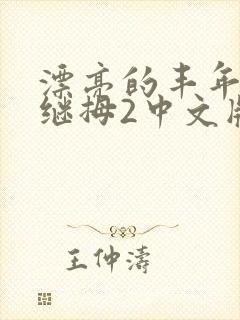 漂亮的丰年
继拇2中文版
王仲濤